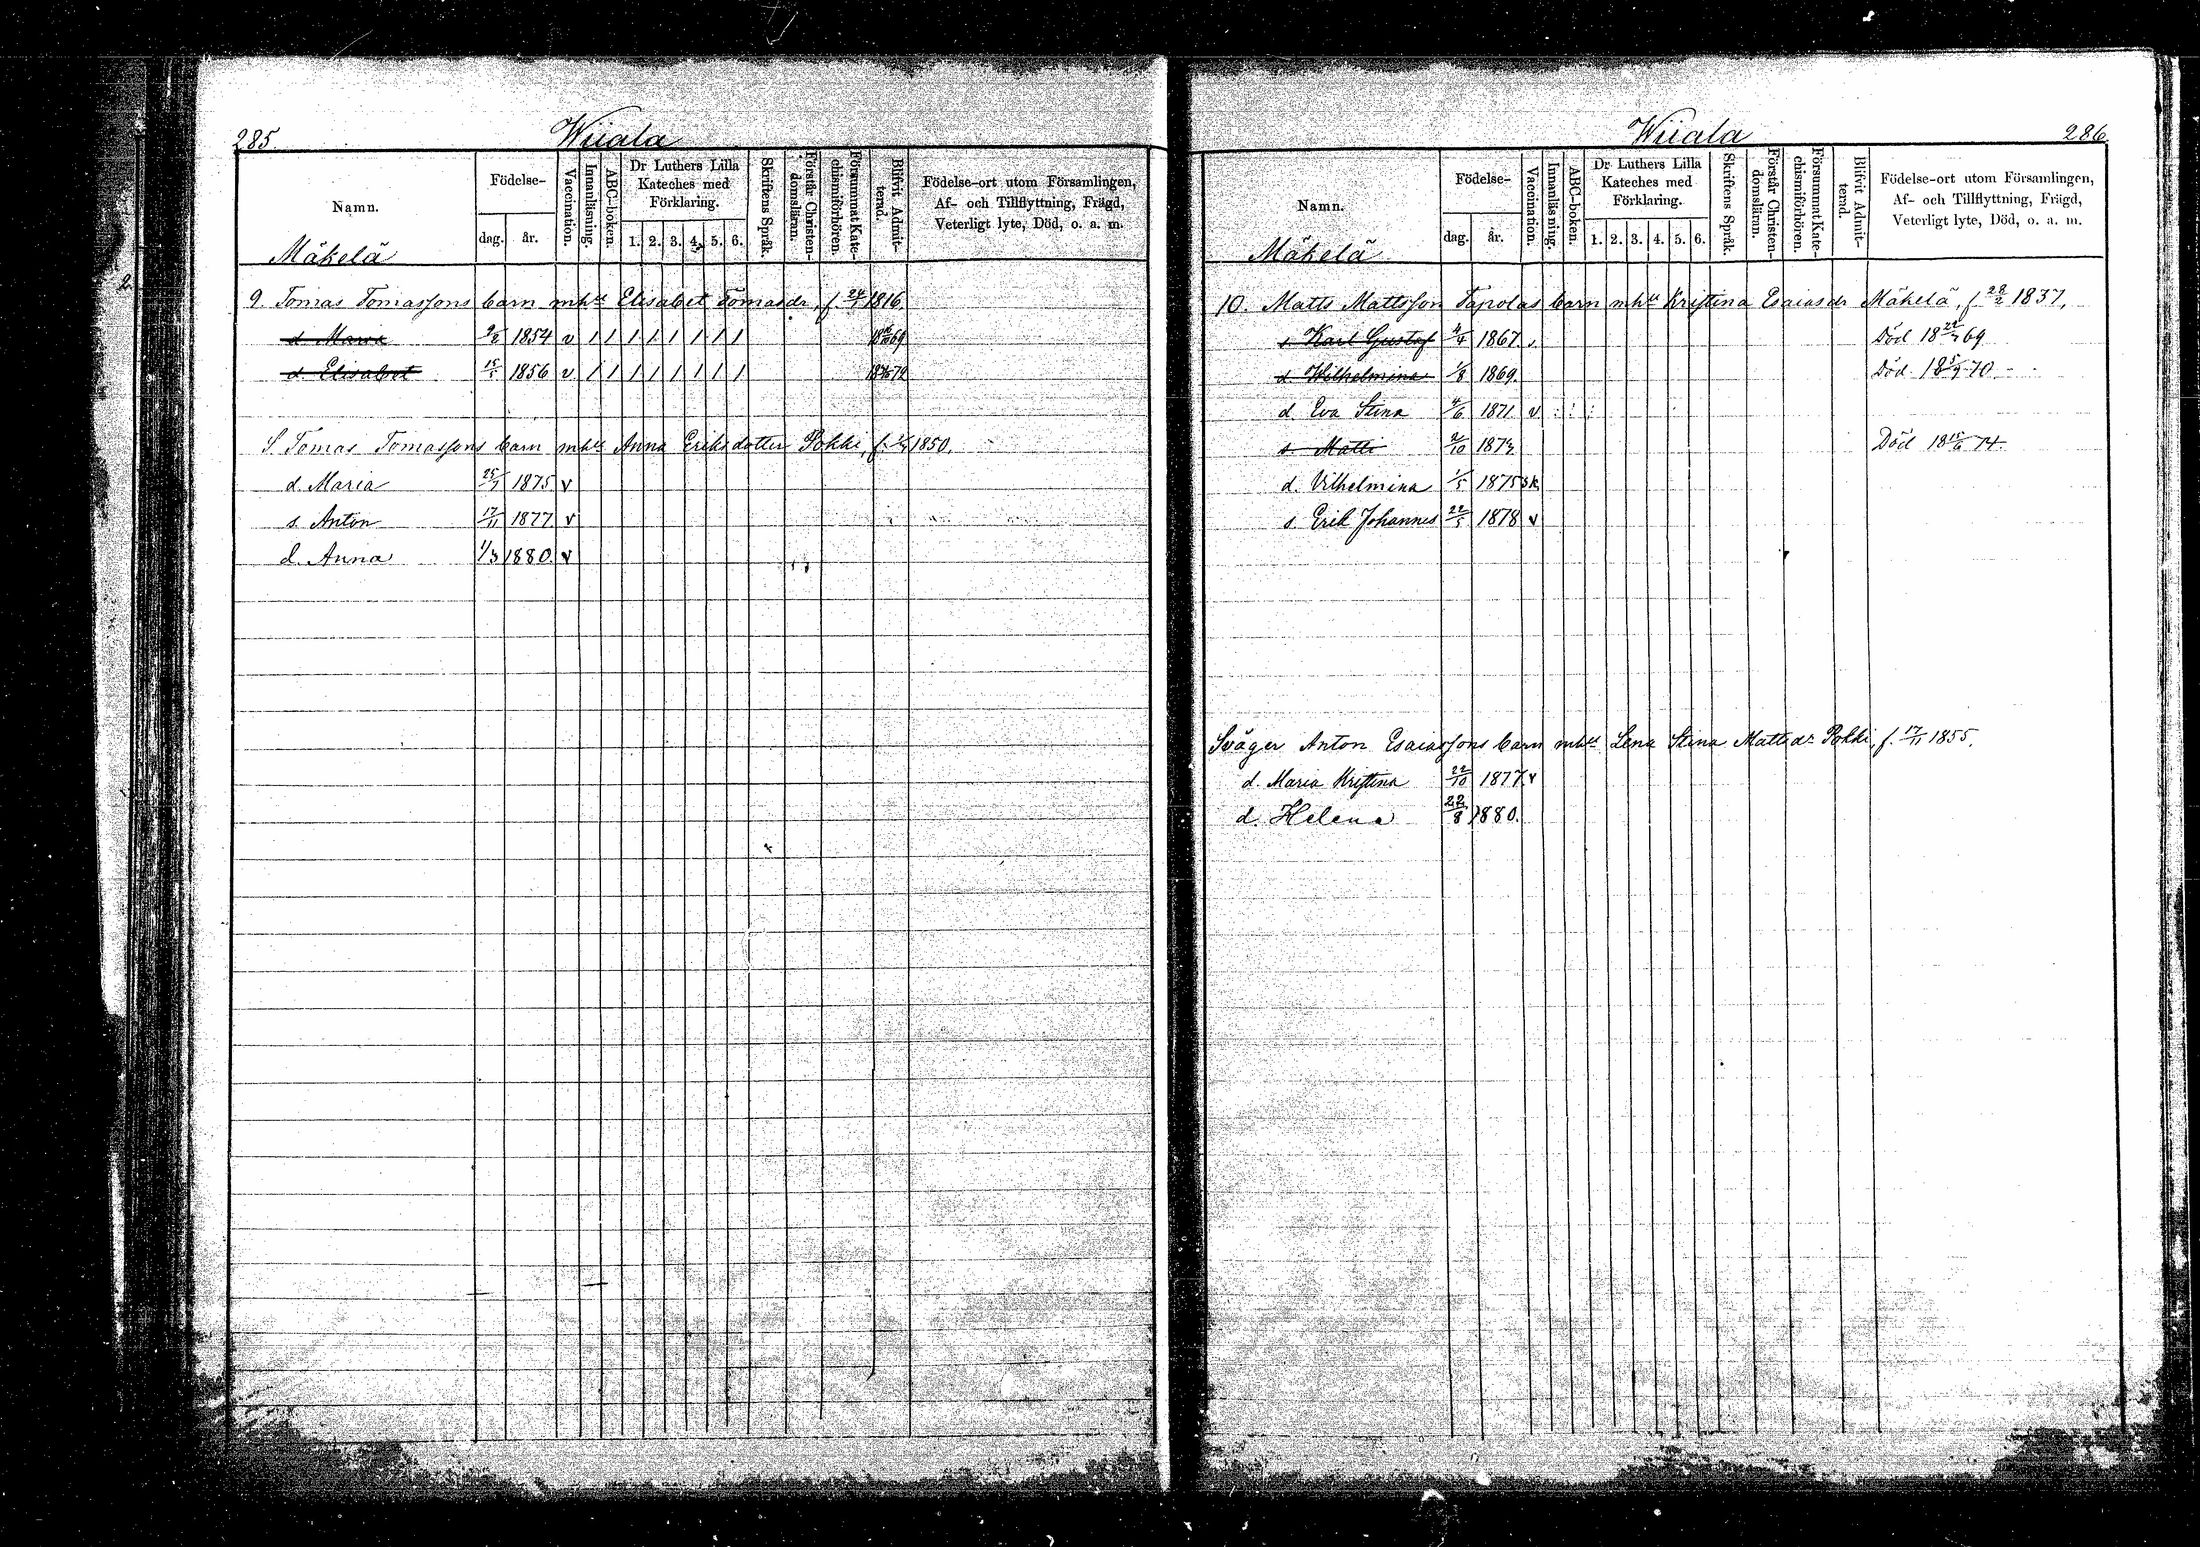 285 Wiiala
Namn. Födelse- dag. år. Vaccination. Innanläsning. ABC-boken. Dr Luthers Lilla Kateches med Förklaring. 1. 2. 3. 4. 5. 6. Skriftens Språk. Förstår Christendomsläran. Försummat Katechismiförhören. Blifvit Admitterad. Födelse-ort utom Församlingen, Af- och Tillflyttning, Frägd, Veterligt lyte, Död, o. a. m.
Mäkelä
9. Tomas Tomassons barn mhu Elisabet Tomasdr, f 24/1 1816.
d Maria 1854 v / / / / / / / /
d. Elisabet 15/5 1856 v / / / / / / / /
S Tomas Tomassons barn mhu Anna Eriksdotter Pokki, f. 1850.
d. Maria 1875 v
s. Anton 17/11 1877 v
d. Anna 1/3 1880. v
2.
Wiiala 286
Namn. Födelse- dag. år. Vaccination. Innanläsning. ABC-boken. Dr Luthers Lilla Kateches med Förklaring. 1. 2. 3. 4. 5. 6. Skriftens Språk. Förstår Christendomsläran. Försummat Katechismiförhören. Blifvit Admitterad. Födelse-ort utom Församlingen, Af- och Tillflyttning, Frägd, Veterligt lyte, Död, o. a. m.
Mäkelä
10. Matts Mattsson Tapolas barn mhu Kristina Esaiasdr Mäkelä, f 28/2 1837,
s Karl Gustaf 4/4 1867. Död
d Wilhelmina 1/8 1869. Död
d Eva Stina 4/6 1871. v
s Matti 2/10 1873 Död 18 15/6 74.
d. Vilhelmina 1/5 1875 sk
s. Erik Johannes 22/5 1878 v
Svåger Anton Esaiassons barn mhu Lena Stina Mattsdr Pokki, f. 17/11 1855.
d. Maria Kristina 22/10 1877. v
d. Helena 22/8 1880.